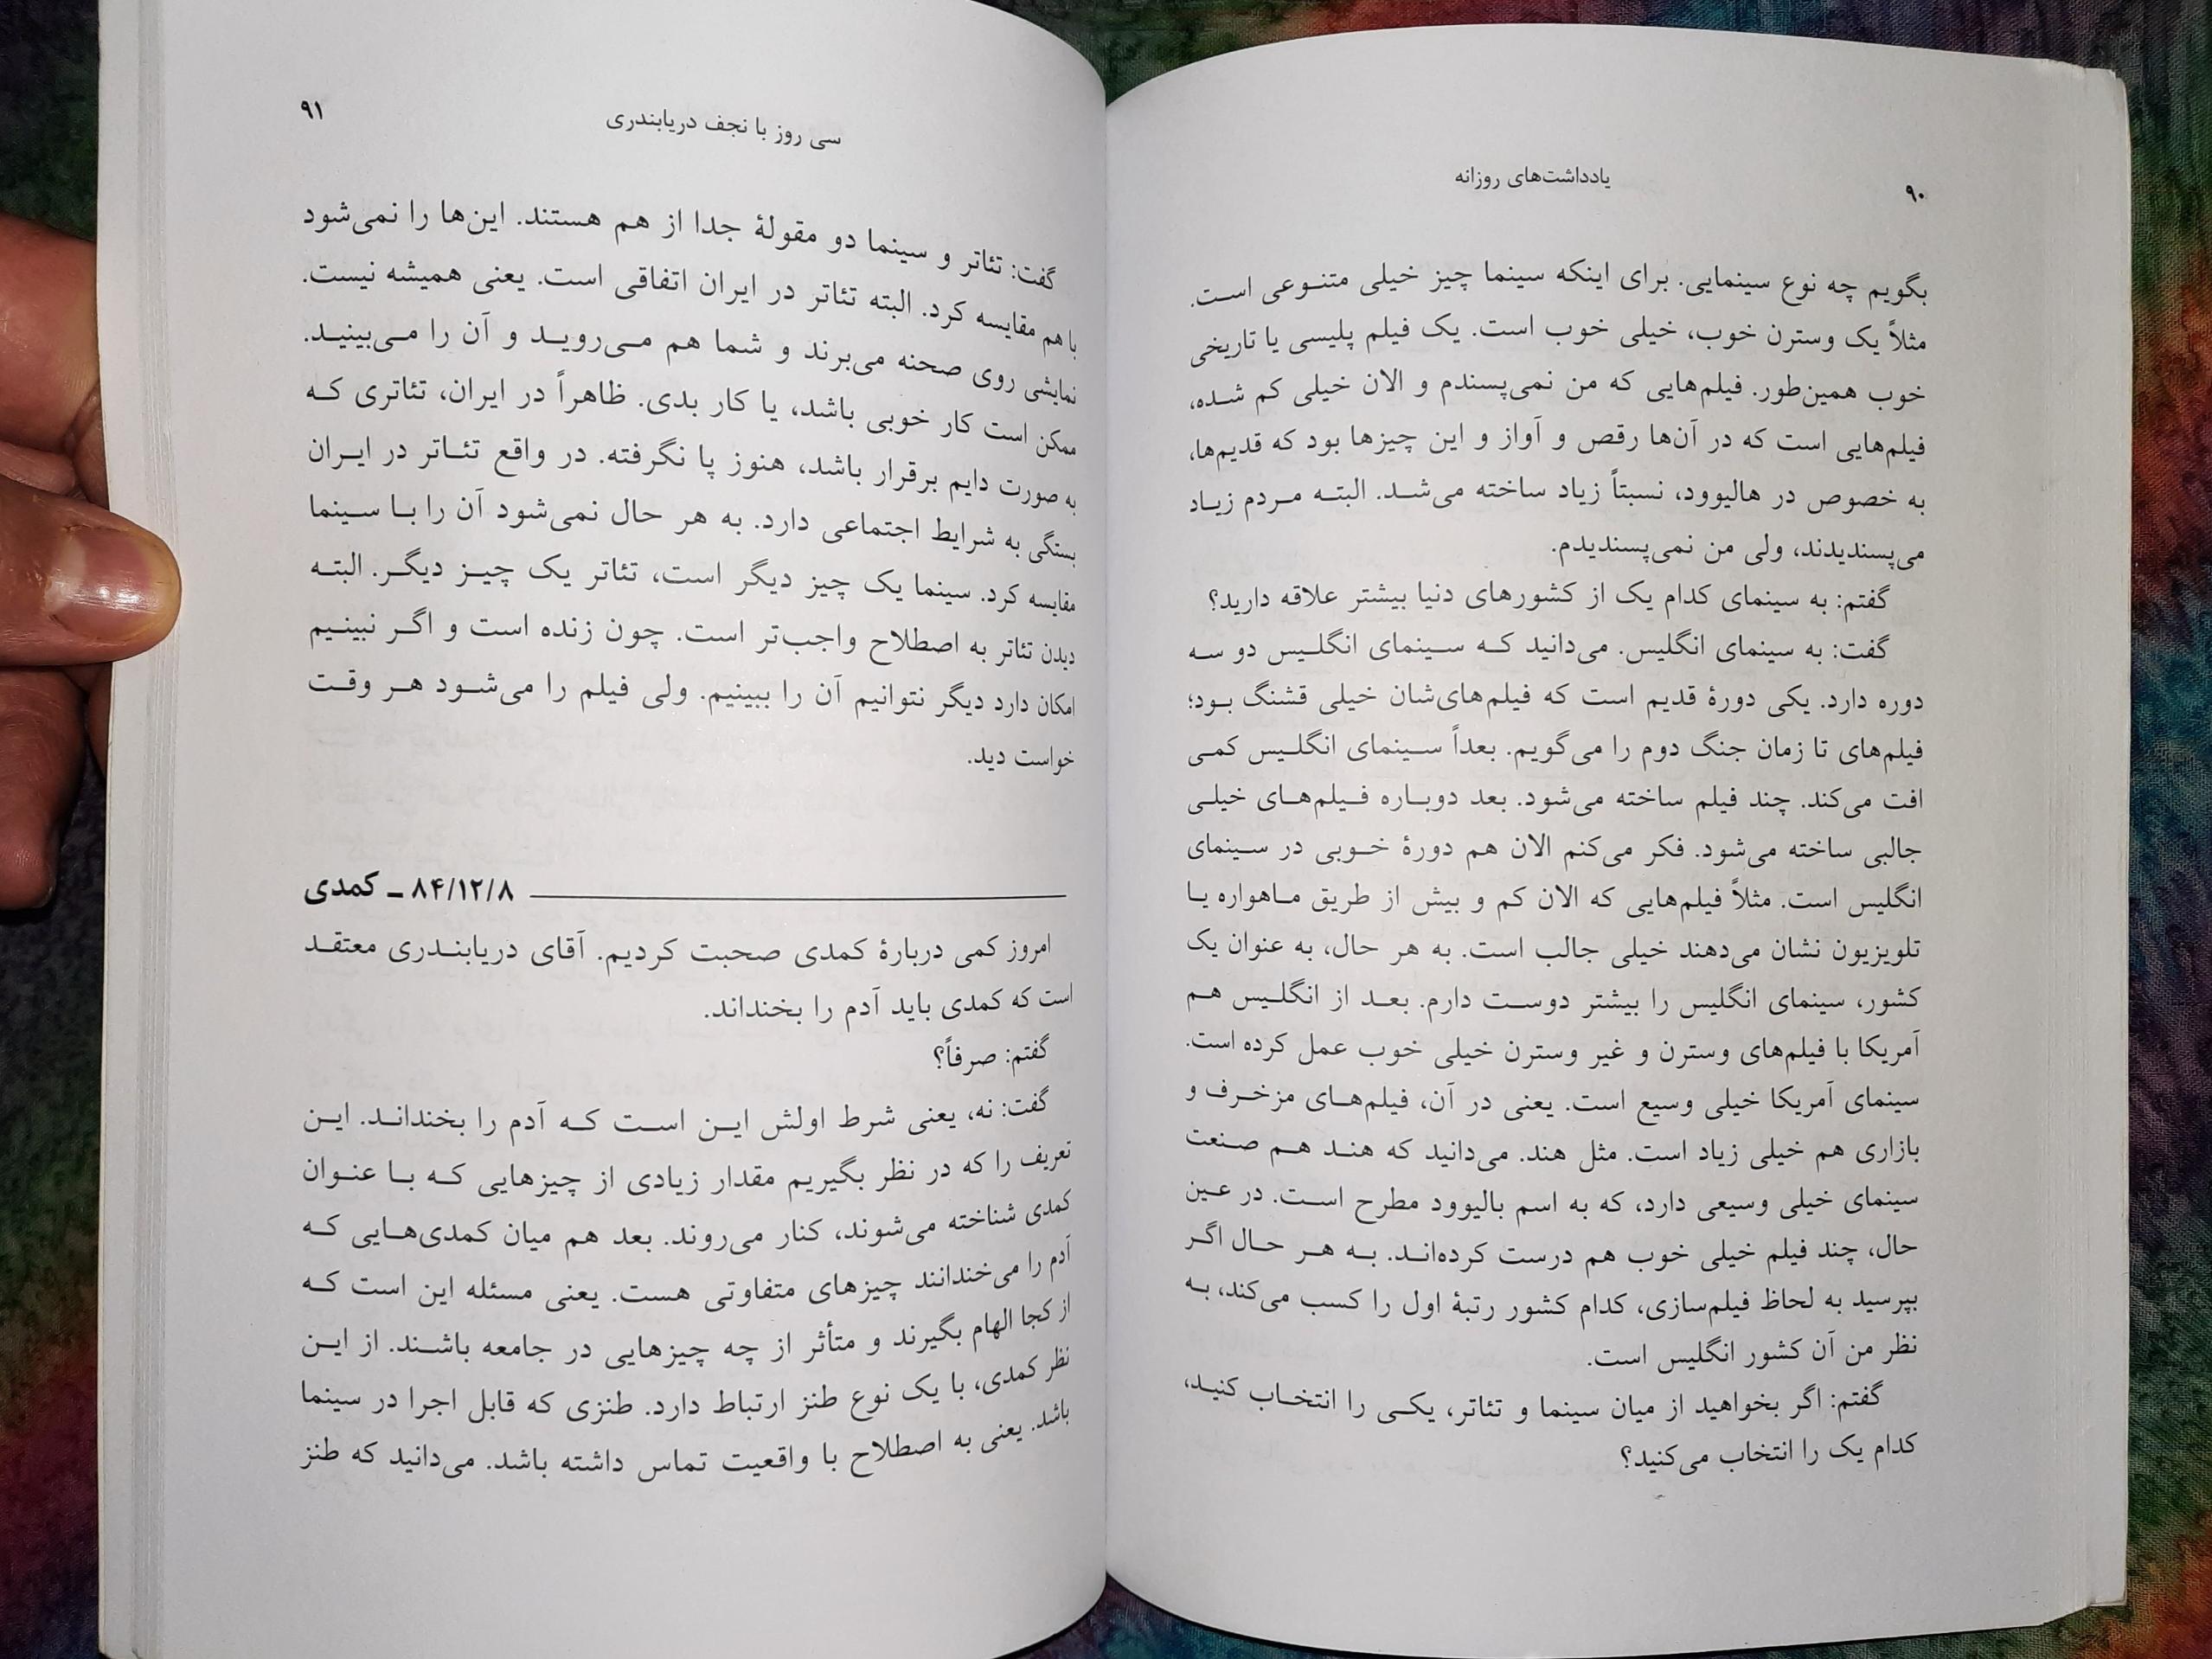 ۹۰
یادداشت‌های روزانه
بگویم چه نوع سینمایی. برای اینکه سینما چیز خیلی متنوعی است.
مثلاً یک وسترن خوب، خیلی خوب است. یک فیلم پلیسی یا تاریخی
خوب همین‌طور. فیلم‌هایی که من نمی‌پسندم و الان خیلی کم شده،
فیلم‌هایی است که در آن‌ها رقص و آواز و این چیزها بود که قدیم‌ها،
به خصوص در هالیوود، نسبتاً زیاد ساخته می‌شد. البته مردم زیاد
می‌پسندیدند، ولی من نمی‌پسندیدم.
گفتم: به سینمای کدام یک از کشورهای دنیا بیشتر علاقه دارید؟
گفت: به سینمای انگلیس. می‌دانید که سینمای انگلیس دو سه
دوره دارد. یکی دورهٔ قدیم است که فیلم‌های‌شان خیلی قشنگ بود؛
فیلم‌های تا زمان جنگ دوم را می‌گویم. بعداً سینمای انگلیس کمی
افت می‌کند. چند فیلم ساخته می‌شود. بعد دوباره فیلم‌های خیلی
جالبی ساخته می‌شود. فکر می‌کنم الان هم دورهٔ خوبی در سینمای
انگلیس است. مثلاً فیلم‌هایی که الان کم و بیش از طریق ماهواره یا
تلویزیون نشان می‌دهند خیلی جالب است. به هر حال، به عنوان یک
کشور، سینمای انگلیس را بیشتر دوست دارم. بعد از انگلیس هم
آمریکا با فیلم‌های وسترن و غیر وسترن خیلی خوب عمل کرده است.
سینمای آمریکا خیلی وسیع است. یعنی در آن، فیلم‌های مزخرف و
بازاری هم خیلی زیاد است. مثل هند. می‌دانید که هند هم صنعت
سینمای خیلی وسیعی دارد، که به اسم بالیوود مطرح است. در عین
حال، چند فیلم خیلی خوب هم درست کرده‌اند. به هر حال اگر
بپرسید به لحاظ فیلم‌سازی، کدام کشور رتبهٔ اول را کسب می‌کند، به
نظر من آن کشور انگلیس است.
گفتم: اگر بخواهید از میان سینما و تئاتر، یکی را انتخاب کنید،
کدام یک را انتخاب می‌کنید؟
سی روز با نجف دریابندری
۹۱
گفت: تئاتر و سینما دو مقولهٔ جدا از هم هستند. این‌ها را نمی‌شود
با هم مقایسه کرد. البته تئاتر در ایران اتفاقی است. یعنی همیشه نیست.
نمایشی روی صحنه می‌برند و شما هم می‌روید و آن را می‌بینید.
ممکن است کار خوبی باشد، یا کار بدی. ظاهراً در ایران، تئاتری که
به صورت دایم برقرار باشد، هنوز پا نگرفته. در واقع تئاتر در ایران
بستگی به شرایط اجتماعی دارد. به هر حال نمی‌شود آن را با سینما
مقایسه کرد. سینما یک چیز دیگر است، تئاتر یک چیز دیگر. البته
دیدن تئاتر به اصطلاح واجب‌تر است. چون زنده است و اگر نبینیم
امکان دارد دیگر نتوانیم آن را ببینیم. ولی فیلم را می‌شود هر وقت
خواست دید.
۸۴/۱۲/۸ ـ کمدی
امروز کمی دربارهٔ کمدی صحبت کردیم. آقای دریابندری معتقد
است که کمدی باید آدم را بخنداند.
گفتم: صرفاً؟
گفت: نه، یعنی شرط اولش این است که آدم را بخنداند. این
تعریف را که در نظر بگیریم مقدار زیادی از چیزهایی که با عنوان
کمدی شناخته می‌شوند، کنار می‌روند. بعد هم میان کمدی‌هایی که
آدم را می‌خندانند چیزهای متفاوتی هست. یعنی مسئله این است که
از کجا الهام بگیرند و متأثر از چه چیزهایی در جامعه باشند. از این
نظر کمدی، با یک نوع طنز ارتباط دارد. طنزی که قابل اجرا در سینما
باشد. یعنی به اصطلاح با واقعیت تماس داشته باشد. می‌دانید که طنز